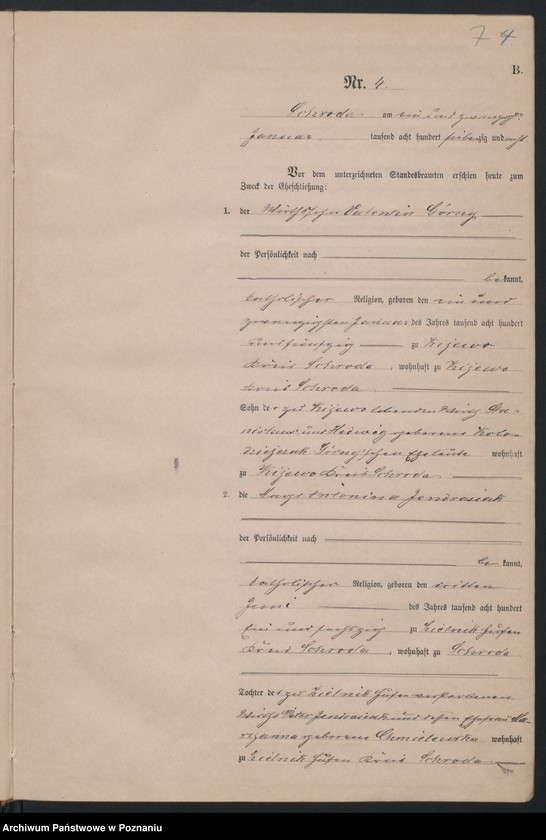 7 4.
B.
Nr. 4.
Schroda am ein und zwanzigsten
Januar tausend acht hundert siebenzig und acht
Vor dem unterzeichneten Standesbeamten erschien heute zum
Zweck der Eheschließung:
1. der Wirthssohn Valentin Górny
der Persönlichkeit nach
bekannt,
katholischer Religion, geboren den ein und
zwanzigsten Januar des Jahres tausend acht hundert
fünfzig zu Kijewo
Kreis Schroda, wohnhaft zu Kijewo
Kreis Schroda
Sohn der zu Kijewo lebenden Wirth
und Hedwig geborene
Górny'schen Eheleute wohnhaft
zu Kijewo Kreis Schroda
2. die Magd Antonina Jendrasiak
der Persönlichkeit nach
bekannt,
katholischer Religion, geboren den dritten
Juni des Jahres tausend acht hundert
ein und sechszig zu Zielnik Hufen
Kreis Schroda, wohnhaft zu Schroda
Tochter des zu Zielnik Hufen verstorbenen
Wirths Peter Jendrasiak und dessen Ehefrau Ma-
rzanna geborene Chmielewska wohnhaft
zu Zielnik Hufen Kreis Schroda
Archiwum Państwowe w Poznaniu